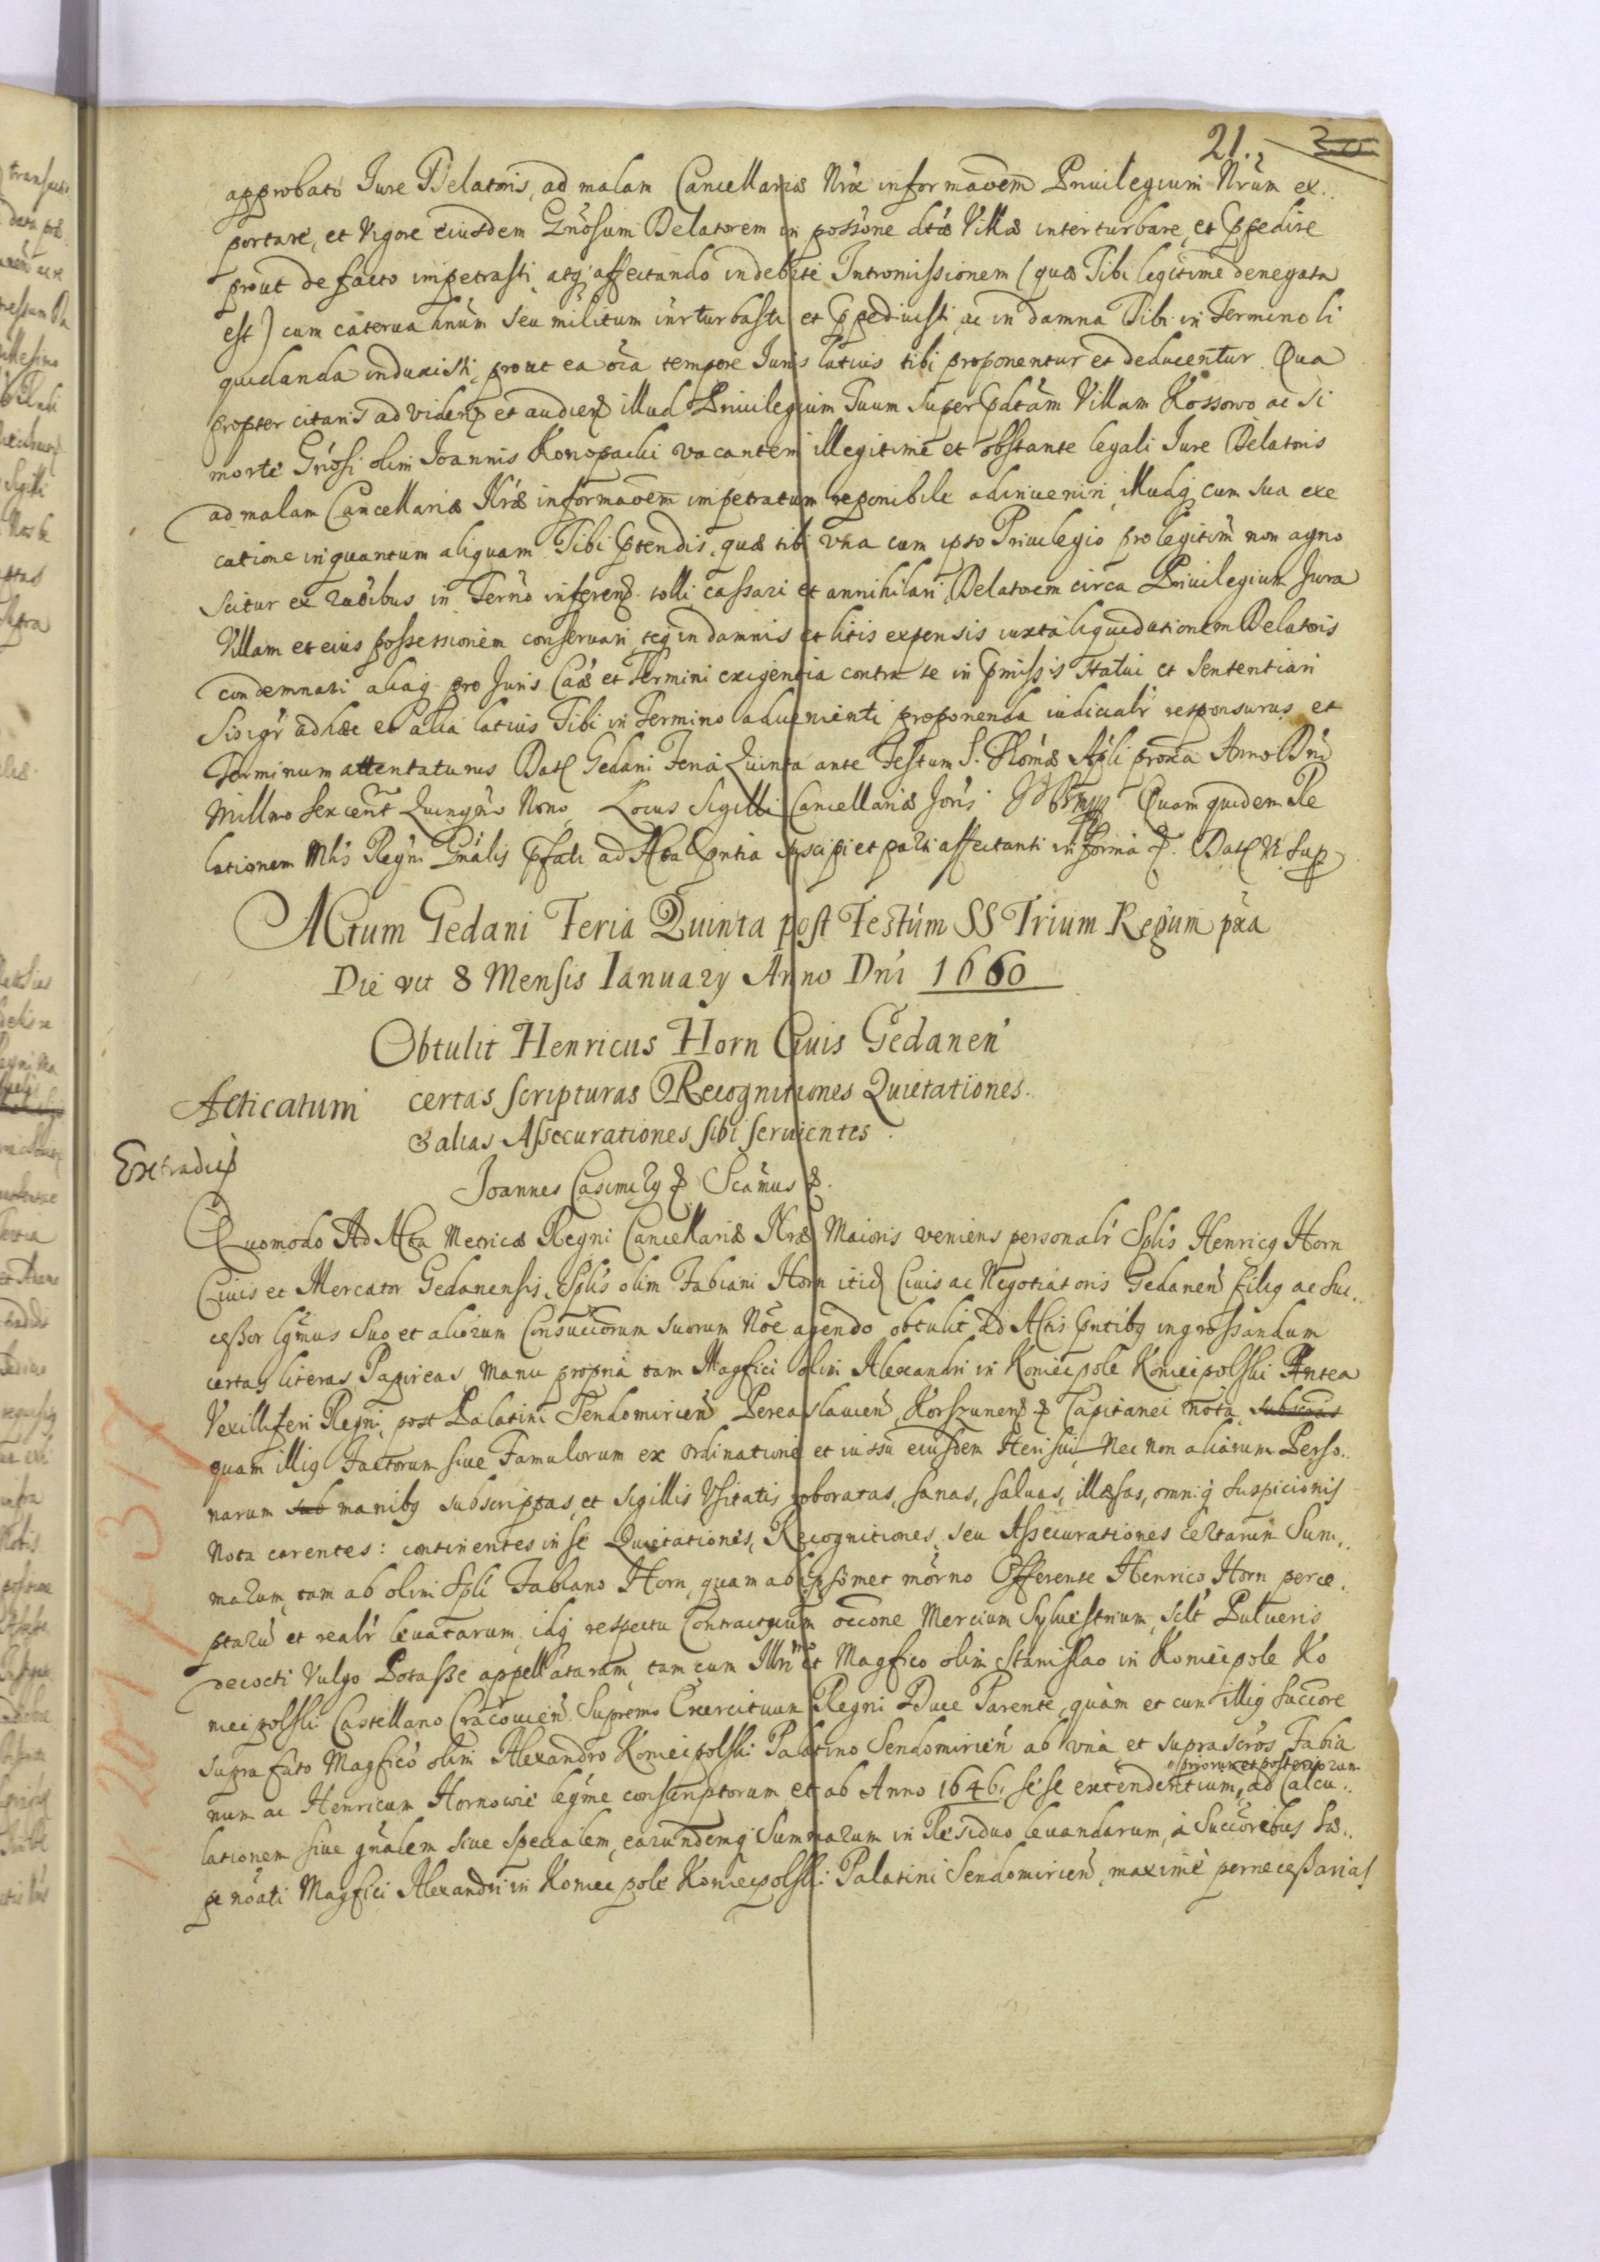 21. 30
approbato Jure Delatoris, ad malam Cancellariæ Nræ informaõem Privilegium Nrũm ex..
portare, et Vigore eiusdem Gñosum Delatorem in possõne dtæ Villæ interturbare, et Ppedire
prout de facto impetrasti, atq; affectando indebite Intromissionem (quæ Tibi legitime denegata
est) cum caterua hñum seu militum inrturbasti et Ppediuisti, ac in damna Tibi in Termino li
quidanda induxisti, prout ea oĩa tempore Juris latius tibi proponentur et deducentur. Qua
propter citaris ad viden͂ et audien͂ illud Privilegium Tuum super Pdctam Villam Kossowo ac si
morte Gñosi olim Joannis Konopacki vacantem illegitime et obstante legali Jure Delatoris
ad malam Cancellariæ Nræ informaõem impetratum reponibile adinueniri, illudq; cum sua exe
cutione inquantum aliquam Tibi Ptendis, quæ tibi vna cum ipso Privilegio pro legitim̃ non agno
scitur ex raõibus in Terño inferen͂ tolli, cassari et annihilari, Delatorem circa Privilegium Jura
Villam et eius possessionem conseruari, teq; in damnis et litis expensis iuxta liquidationem Delatoris
condemnari aliaq; pro Juris Cãæ et Termini exigentia contra te in Pmissis statui et sententiari
Sis igr̃ ad hæc et alia latius Tibi in Termino aduenienti proponenda iudicialr̃ responsurus et
Terminum attentaturus Dat͂ Gedani Feria Quinta ante Festum S. Thomæ Apli proxa Anno Dñi
Millmo Sexcent͂ Quinqmo Nono. Locus Sigilli Cancellariæ Joris Quam quidem Re
lationem Mls Regni Gñalis Pfati ad Acta Pntia suscipi et parti affectanti in forma &. Dat͂ Vt Sup
ACtum Gedani Feria Quinta post Festum SS Trium Regum pxa
Die vtt 8 Mensis Ianuary Anno Dñi 1660
Obtulit Henricus Horn Ciuis Gedanen͂
Acticatum certas scripturas Recognitiones Quietationes.
& alias Assecurationes sibi seruientes.
Extradit͂
Joannes Casimirꝯ & Scãmus &.
Quomodo Ad Acta Metricæ Regni Cancellariæ Nræ Maioris veniens personalr̃ Splis Henricꝯ Horn
Ciuis et Mercator Gedanensis, Splis olim Fabiani Horn itid͂ Ciuis ac Negotiatoris Gedanen͂ filiꝯ ac Suc..
cessor lgm̃us Suo et aliorum Consuccorum suorum Nõe agendo obtulit ad Actis Pntibꝯ ingrossandum
certas literas Papireas, manu propria tam Magfici olim Alexandri in Koniecpole Koniecpolski Antea
Vexilliferi Regni, post Palatini Sendomirien͂ Pereaslauien͂, Korszunen͂ & Capitanei nota, subscrias
quam illiꝯ Factorum siue Famulorum ex ordinatione et iussu eiusdem Heri sui, Nec non aliarum Perso..
narum sub manibꝯ subscriptas, et sigillis Vsitatis roboratas, sanas, saluas, illæsas, omniq; suspicionis
nota carentes: continentes in se Quietationes, Recognitiones, seu Assecurationes certarum Sum..
marum, tam ab olim Spli Fabiano Horn, quam ab ipsomet mõrno Offerente Henrico Horn perce..
ptarũ et realr̃ leuatarum, idq; respectu Contractuum oc̃cone Mercium Syluestrium, silt Pulueris
decocti Vulgo Potassze appellatarum, tam cum Illrimo et Magfico olim Stanislao in Koniecpole Ko
niecpolski Castellano Cracouien͂. Supremo Exercituum Regni Duce Parente, quàm et cum illiꝯ succore
suprafato Magfico olim Alexandro Koniecpolski Palatino Sendomirien͂ ab vna et suprascros Fabia
num ac Henricum Hornowie legme conscriptorum et ab Anno 1646. sese extendentium, priorum et posteriorum ad Calcu..
lationem siue gñalem siue specialem, earundemq; Summarum in Residuo leuandarum, à Succoribus Sæ..
pe nõati Magfici Alexandri in Koniecpole Koniecpolski Palatini Sendomirien͂, maxime pernecessarias